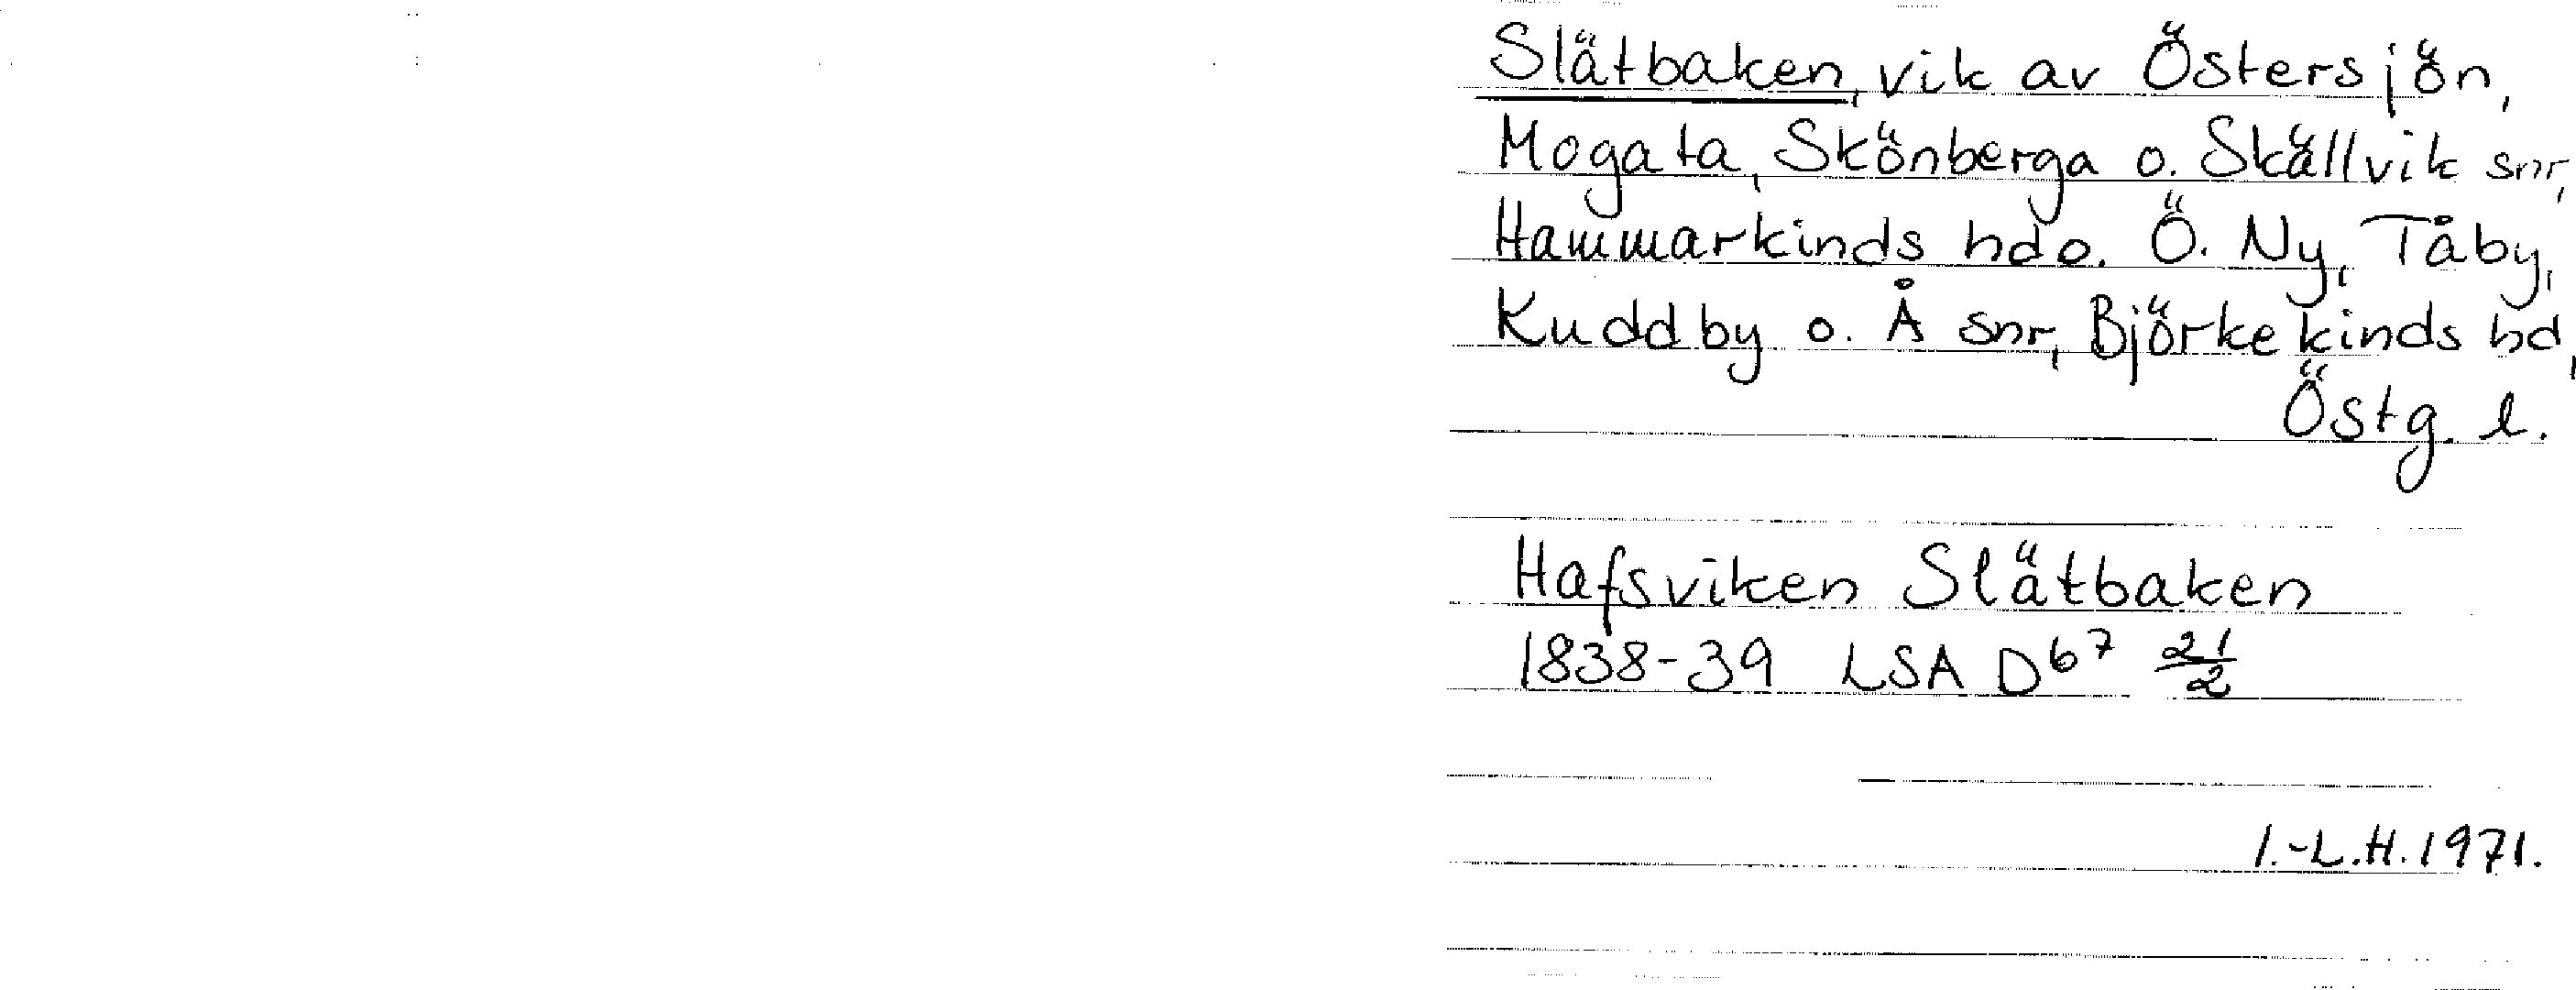 Slätbaken, vik av Östersjön,
Mogata, Skönberga o. Skällvik snr,
Hammarkinds hd o. Ö. Ny, Tåby,
Kuddby o. Å snr, Björkekinds hd,
Östg. l.
Hafsviken Slätbaken
1838-39 LSA D6⁷ 21/2
I.-L.H. 1971.